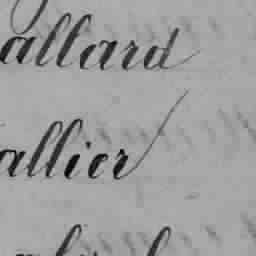 allard
allier